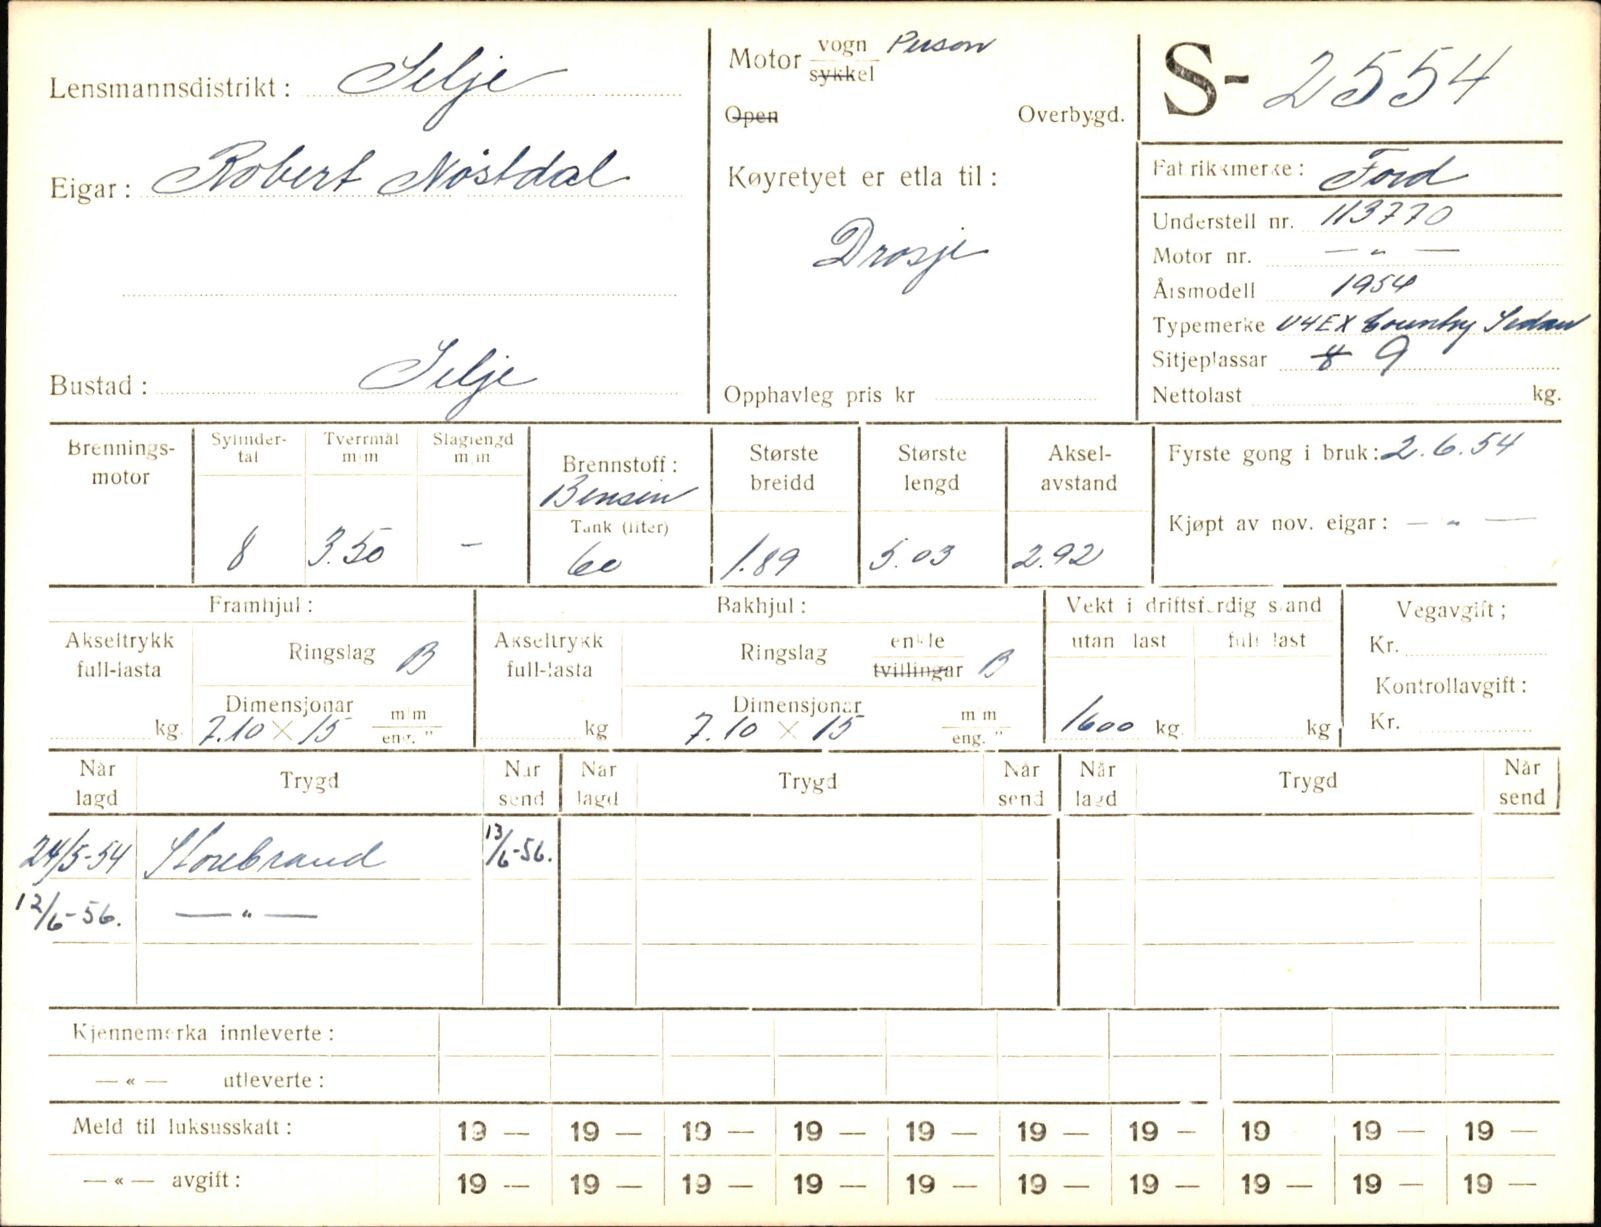 Lensmannsdistrikt: Selje
Eigar: Robert Nøstdal
Bustad: Selje
Motor vogn Person
sykkel
Open Overbygd.
Køyretyet er etla til:
Drosje
Opphavleg pris kr
S- 2554
Fabrikkmerke: Ford
Understell nr. 113770
Motor nr. — " —
Årsmodell 1954
Typemerke U4EX Country Sedan
Sitjeplassar 8 9
Nettolast kg.
Brennings-
motor
Sylinder-
tal
8
Tverrmål
m/m
3.50
Slaglengd
m/m
-
Brennstoff:
Bensin
Tank (liter)
60
Største
breidd
1.89
Største
lengd
5.03
Aksel-
avstand
2.92
Fyrste gong i bruk: 2.6.54
Kjøpt av nov. eigar: — " —
Framhjul:
Akseltrykk
full-lasta
kg.
Ringslag B
Dimensjonar
7.10 × 15 m/m
eng. "
Bakhjul:
Akseltrykk
full-lasta
kg
Ringslag enkle
tvillingar B
Dimensjonar
7.10 × 15 m/m
eng. "
Vekt i driftsferdig stand
utan last
1600 kg.
full last
kg
Vegavgift;
Kr.
Kontrollavgift:
Kr.
Når
lagd Trygd Når
send Når
lagd Trygd Når
send Når
lagd Trygd Når
send
24/5-54 Storebrand 13/6-56.
12/6-56. — " —
Kjennemerka innleverte:
— « — utleverte:
Meld til luksusskatt: 19 — 19 — 19 — 19 — 19 — 19 — 19 — 19 19 — 19 —
— « — avgift: 19 — 19 — 19 — 19 — 19 — 19 — 19 — 19 — 19 — 19 —